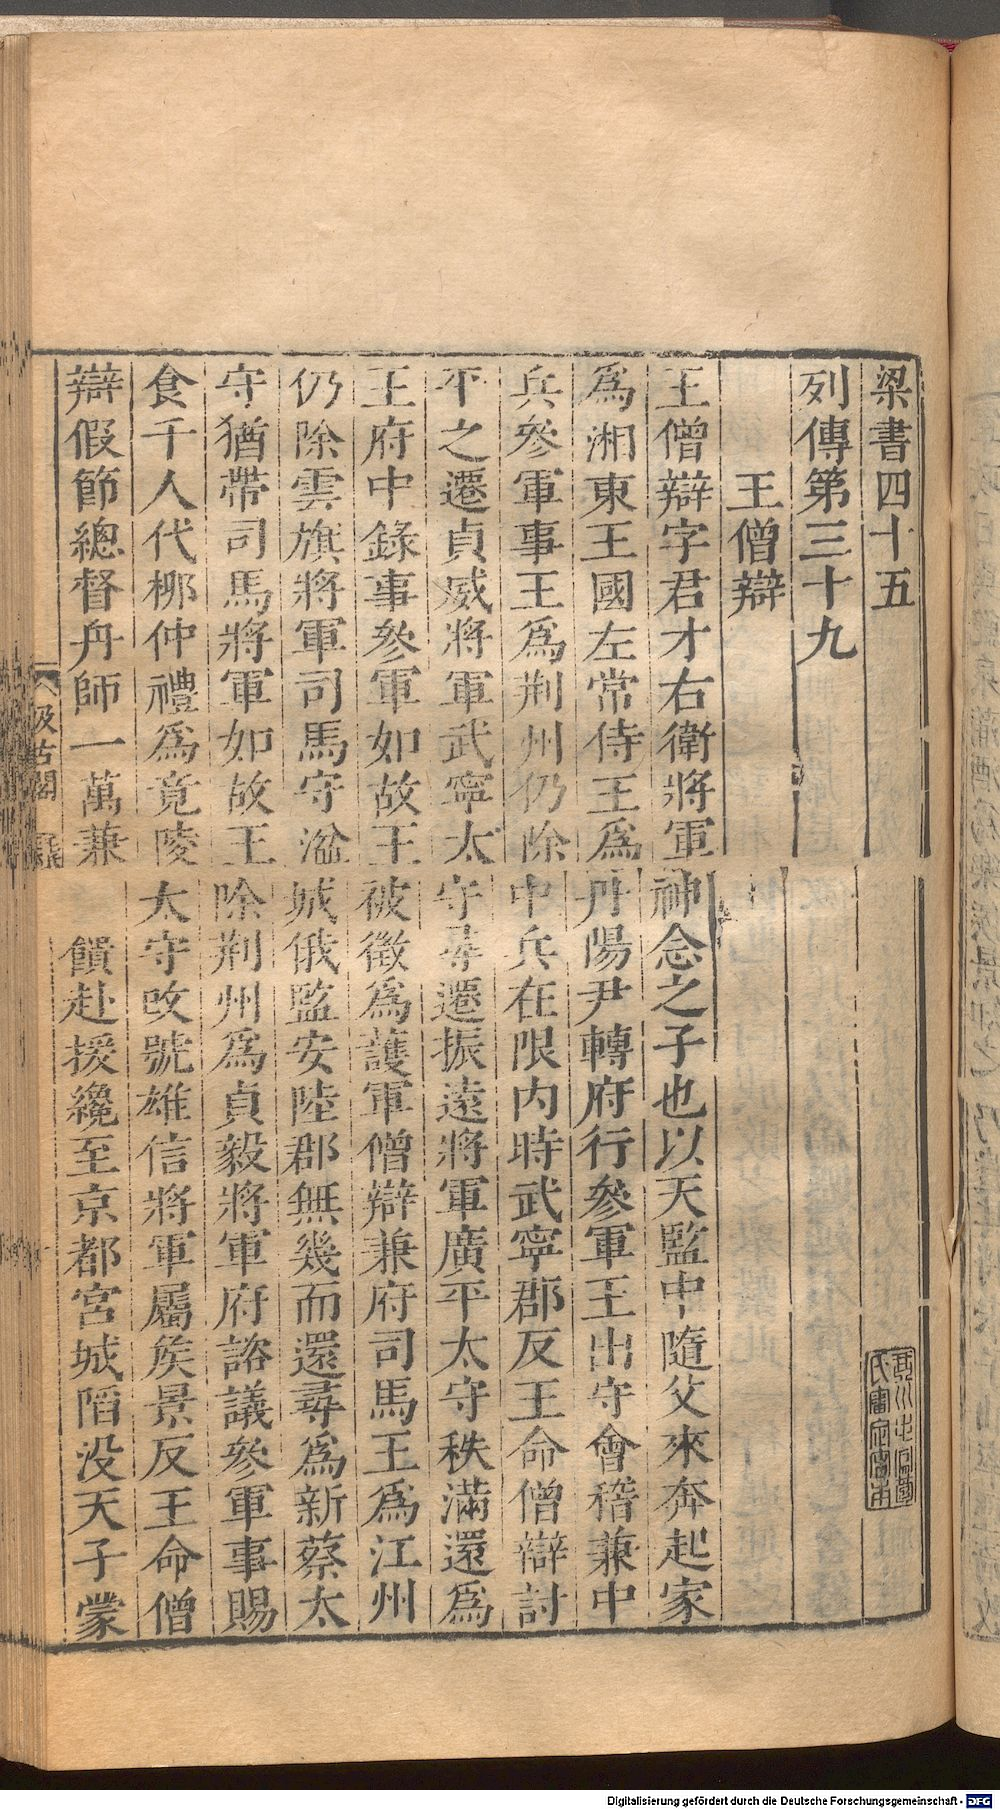 梁書四十五
列傳第三十九
王僧辯
王僧辯字君才右衛將軍神念之子也以天監中隨父來奔起家
爲湘東王國左常侍王爲丹陽尹轉府行參軍王出守會稽兼中
兵參軍事王爲荆州仍除中兵在限內時武寧郡反王命僧辯討
平之遷貞威將軍武寧太守尋遷振遠將軍廣平太守秩滿還爲
王府中錄事參軍如故王被徵爲護軍僧辯兼府司馬王爲江州
仍除雲旗將軍司馬守湓城俄監安陸郡無幾而還尋爲新蔡太
守猶帶司馬將軍如故王除荆州爲貞毅將軍府諮議參軍事賜
食千人代柳仲禮爲竟陵太守改號雄信將軍屬侯景反王命僧
辯假節總督舟師一萬兼饋赴援纔至京都宮城陷没天子蒙
汲古閣
Digitalisierung gefördert durch die Deutsche Forschungsgemeinschaft - DFG